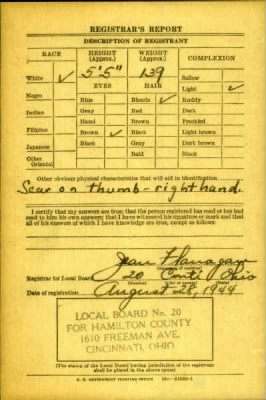 REGISTRAR'S REPORT
DESCRIPTION OF REGISTRANT
RACE HEIGHT (Approx.) WEIGHT (Approx.) COMPLEXION
White ✓ 5'5" 139 Sallow
Light ✓
EYES HAIR
Negro Blue Blonde ✓ Ruddy
Indian Gray Red Dark
Hazel Brown Freckled
Filipino Brown ✓ Black Light brown
Japanese Black Gray Dark brown
Other Oriental Bald Black
Other obvious physical characteristics that will aid in identification
Scar on thumb - right hand.
I certify that my answers are true; that the person registered has read or has had
read to him his own answers; that I have witnessed his signature or mark and that
all of his answers of which I have knowledge are true, except as follows:
Jean Flanagan
Registrar for Local Board 20 Ohio
(Number) (State)
Date of registration August 28, 1944
LOCAL BOARD No. 20
FOR HAMILTON COUNTY
1610 FREEMAN AVE.
CINCINNATI, OHIO
(The stamp of the Local Board having jurisdiction of the registrant
shall be placed in the above space)
U. S. GOVERNMENT PRINTING OFFICE